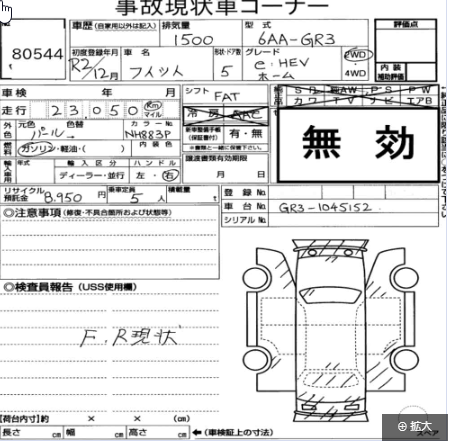 事故現状車コーナー
80544
車歴 (自家用以外は記入) 排気量 型式 評価点
1500 6AA-GR3
初度登録年月 車名 形状・ドア数 グレード
R2/12月 フィット 5 e:HEV ホーム
2WD・4WD
内装補助評価
車検 年 月 シフト FAT
走行 23,050 km マイル
冷房 AAC
外色 元色 色替 カラーNo. 内装色
パール→ NH883P
新車整備手帳(保証書付) 有・無
※書類と一緒に保管下さい。
無効
ガソリン・軽油・( )
譲渡書類有効期限
月 日
輸入車用 年式 輸入区分 ハンドル
ディーラー・並行 左・右
リサイクル預託金 8,950円 乗車定員 5人 積載量 t
登録No.
車台No. GR3-1045152
シリアルNo.
◎注意事項 (修復・不具合箇所および状態等)
◎検査員報告 (USS使用欄)
F.R現状
【荷台内寸】 × × (cm)
長さ cm 幅 cm 高さ cm ←(車検証上の寸法)
スペア
拡大